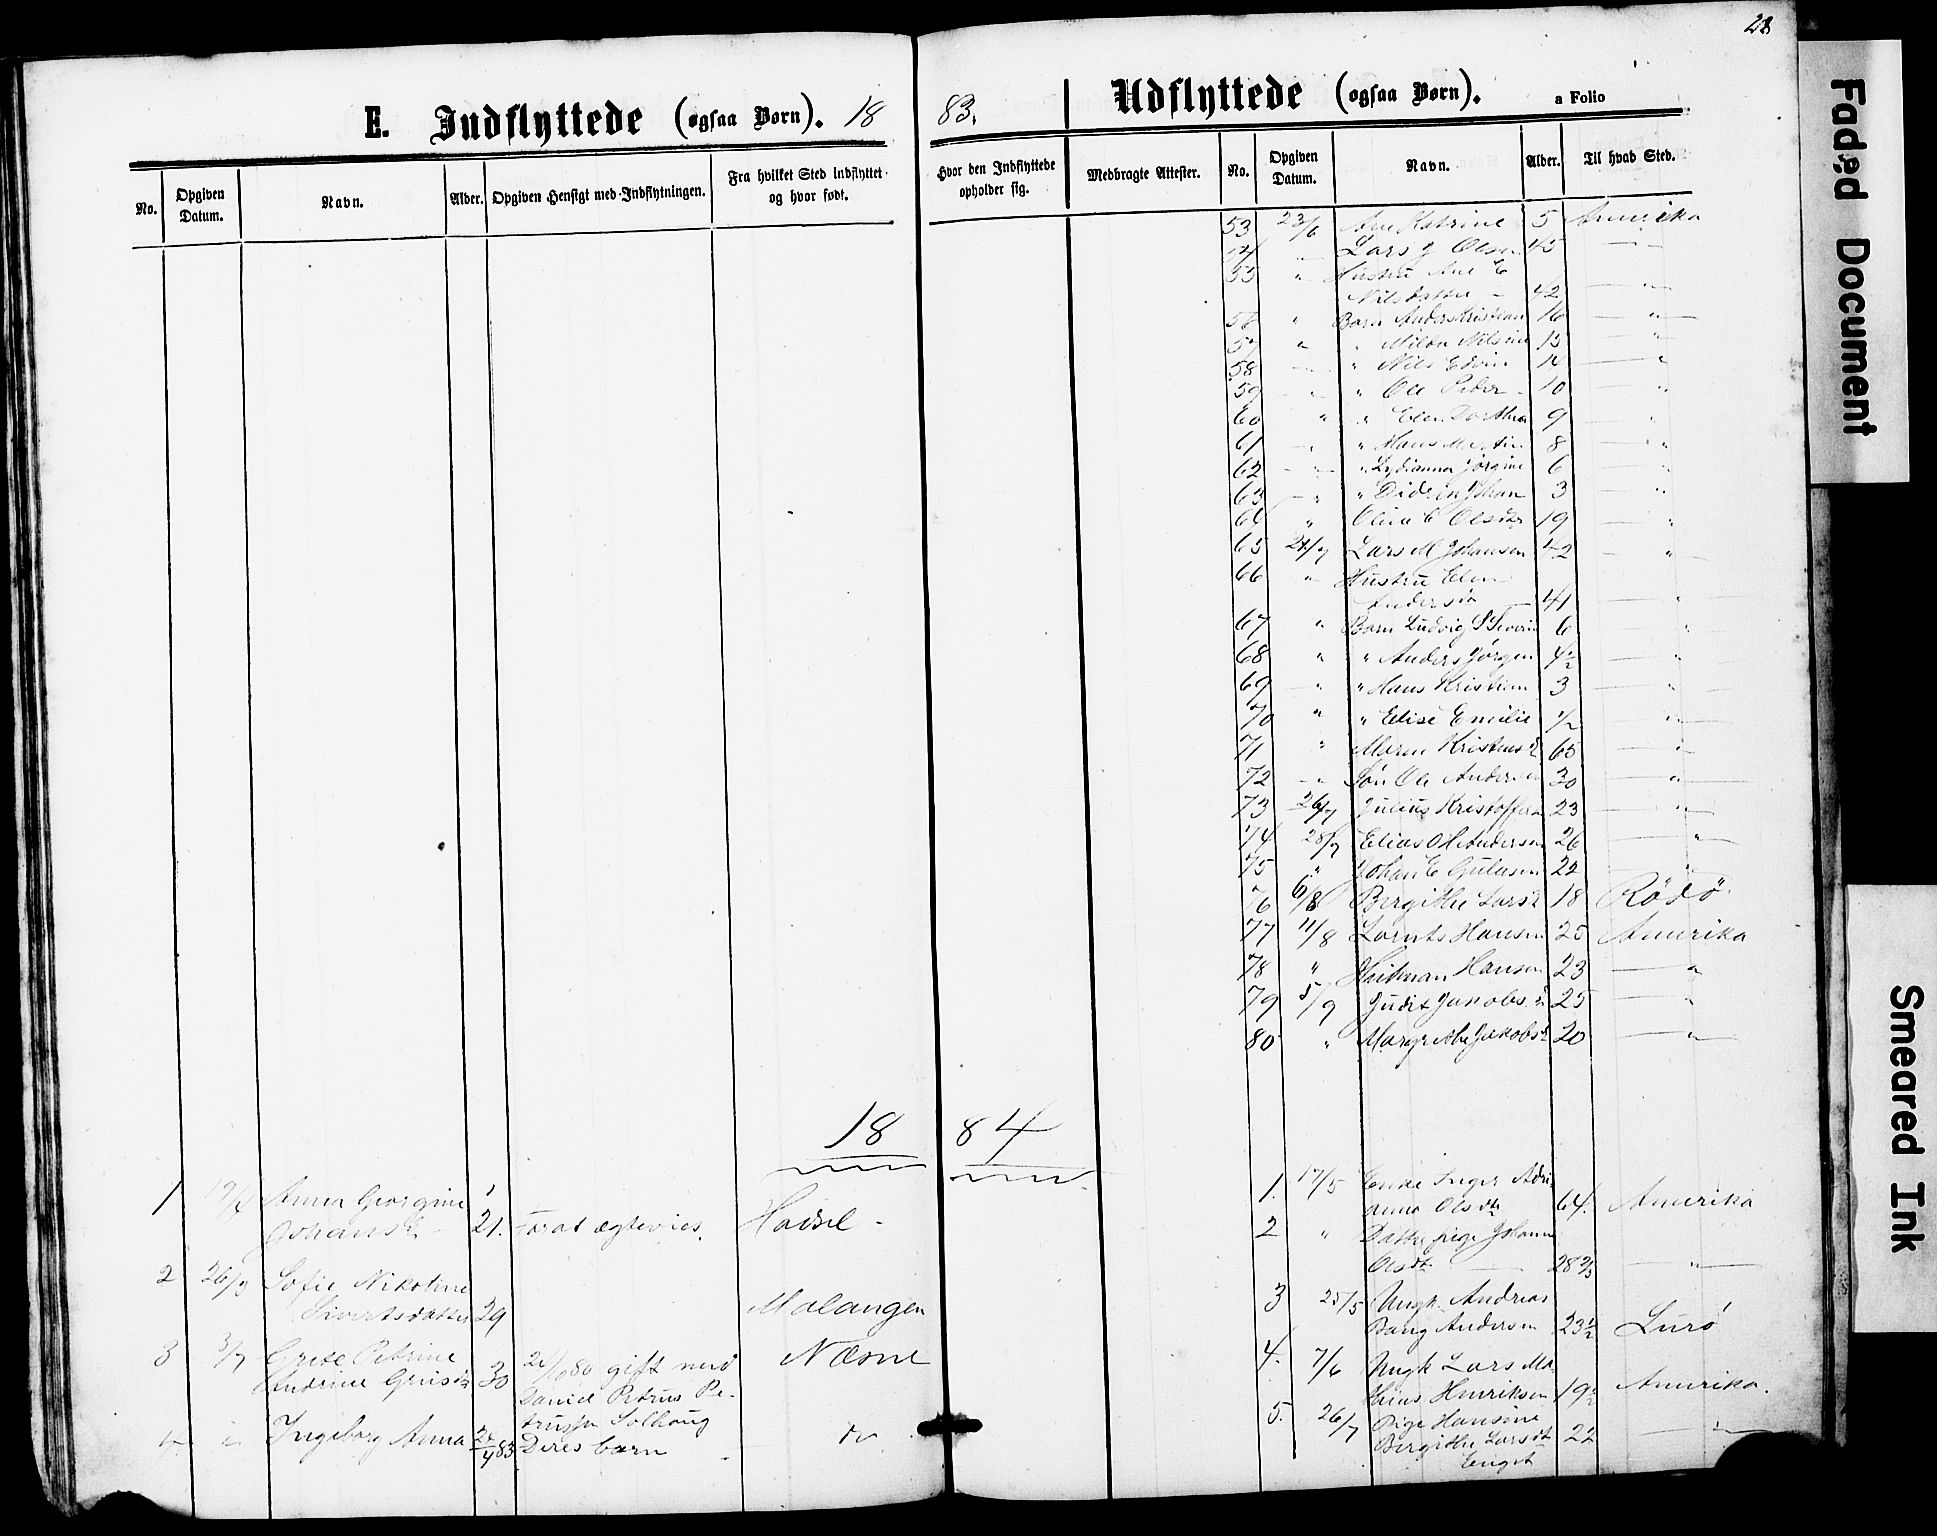 22
E. Indflyttede (ogsaa Børn). 18
83. Udflyttede (ogsaa Børn). a Folio
No. Opgiven Datum. Navn. Alder. Opgiven Hensigt med Indflytningen. Fra hvilket Sted indflyttet og hvor født.
Hvor den Indflyttede opholder sig. Medbragte Attester. No. Opgiven Datum. Navn. Alder. Til hvad Sted.
53 23/6 Ane Katrine 5 Amerika
54 " Lars J Olsen 45 "
55 " Hustru Ane E
Nilsdatter - 42 "
56 " Barn Anders Kristian 16 "
57 " " Nilsine 15 "
58 " " Nils Edvin 14 "
59 " " Ole Peder 10 "
60 " " Elen Dorthea 9 "
61 " " Hans Martin 8 "
62 " " Lydianna Jørgine 6 "
63 " " Didrik Johan 3 "
64 " Olina E Olsdtr 19 "
65 24/7 Lars M Johansen 42 "
66 " Hustru Elen
Andersdt 41 "
67 " Barn Ludvig S Severin 6 "
68 " " Anders Jørgen 4½ "
69 " " Hans Kristian 3 "
70 " " Elise Emilie ½ "
71 " Maren Kristensd 65 "
72 " Søn Ole Andersen 30 "
73 26/7 Julius Kristoffersen 23 "
74 28/7 Elias O H Andersen 26 "
75 " Johan E 22 "
76 6/8 Bergithe Larsd 18 Rödö
77 11/8 Lornts Hansen 25 Amerika
78 " Hansen 23 "
79 5/9 Judit Jakobsd 25 "
80 " Margrethe Jakobsd 20 "
18 84
1 19/4 Anna Georgine
Johansd - 21. For at ægtevies. Hadsel -
2 26/3 Sofie Nikoline
Sivertsdatter 29 Malangen
3 3/7 Grete Petrine
30 21/10 80 gift med Næsne
Daniel Petrus Pe-
Solhaug
4 " Ingeborg Anna 24/4 83 Deres barn do
1. 17/5 Enke Inger Adri-
anna Olsdt 64. Amerika
2 " Datter pige Johanna
Olsdt 28 2/3 "
3 25/5 Ungk. Andreas
Bang Andersen 23½ Lurö
4. 7/6 Ungk Lars Ma-
thias Henriksen 19½ Amerika.
5. 26/7 Pige Hansine
Bergithe Larsdt 22 "
Enget
Faded Document
Smeared Ink